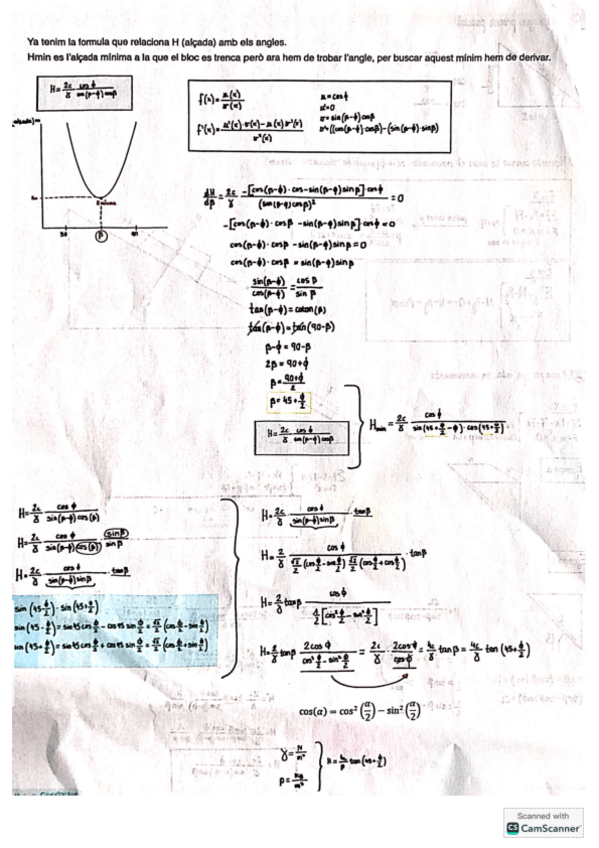 Ya tenim la formula que relaciona H (alçada) amb els angles.
Hmin es l'alçada mínima a la que el bloc es trenca però ara hem de trobar l'angle, per buscar aquest mínim hem de derivar.
H=2c/γ · cosϕ/(sin(β-ϕ)cosβ)
f(x)=u(x)/v(x)
f'(x)=(u'(x)·v(x)-u(x)v'(x))/v²(x)
u=cosϕ
u'=0
v=sin(β-ϕ)cosβ
v'=((cos(β-ϕ)·cosβ)-(sin(β-ϕ)·sinβ)
β
dH/dβ=2c/γ · (-[cos(β-ϕ)·cos-sin(β-ϕ)sinβ]cosϕ)/(sin(β-ϕ)cosβ)²=0
-[cos(β-ϕ)·cosβ-sin(β-ϕ)sinβ]·cosϕ=0
cos(β-ϕ)·cosβ-sin(β-ϕ)sinβ=0
cos(β-ϕ)·cosβ=sin(β-ϕ)sinβ
sin(β-ϕ)/cos(β-ϕ)=cosβ/sinβ
tan(β-ϕ)=cotan(β)
tan(β-ϕ)=tan(90-β)
β-ϕ=90-β
2β=90+ϕ
β=(90+ϕ)/2
β=45+ϕ/2
H=2c/γ · cosϕ/(sin(β-ϕ)cosβ)
Hmin=2c/γ · cosϕ/(sin(45+ϕ/2-ϕ)·cos(45+ϕ/2))
H=2c/γ · cosϕ/(sin(β-ϕ)cos(β))
H=2c/γ · cosϕ/(sin(β-ϕ)cos(β)) · sinβ/sinβ
H=2c/γ · cosϕ/(sin(β-ϕ)sinβ) · tanβ
sin(45-ϕ/2)·sin(45+ϕ/2)
sin(45-ϕ/2)=sin45cosϕ/2-cos45sinϕ/2=√2/2(cosϕ/2-sinϕ/2)
sin(45+ϕ/2)=sin45cosϕ/2+cos45sinϕ/2=√2/2(cosϕ/2+sinϕ/2)
H=2c/γ · cosϕ/(sin(β-ϕ)sinβ) · tanβ
H=2/γ · cosϕ/(√2/2(cosϕ/2-sinϕ/2)√2/2(cosϕ/2+cosϕ/2)) · tanβ
H=2/γ tanβ cosϕ/(1/2[cos²ϕ/2-sin²ϕ/2])
H=2/γ tanβ 2cosϕ/(cos²ϕ/2-sin²ϕ/2)=2c/γ · 2cosϕ/cosϕ=4c/γ tanβ=4c/γ tan(45+ϕ/2)
cos(α) = cos²(α/2) − sin²(α/2)
γ=N/m³
ρ=kg/m³
H=4c/ρ tan(45+ϕ/2)
Scanned with
CS CamScanner